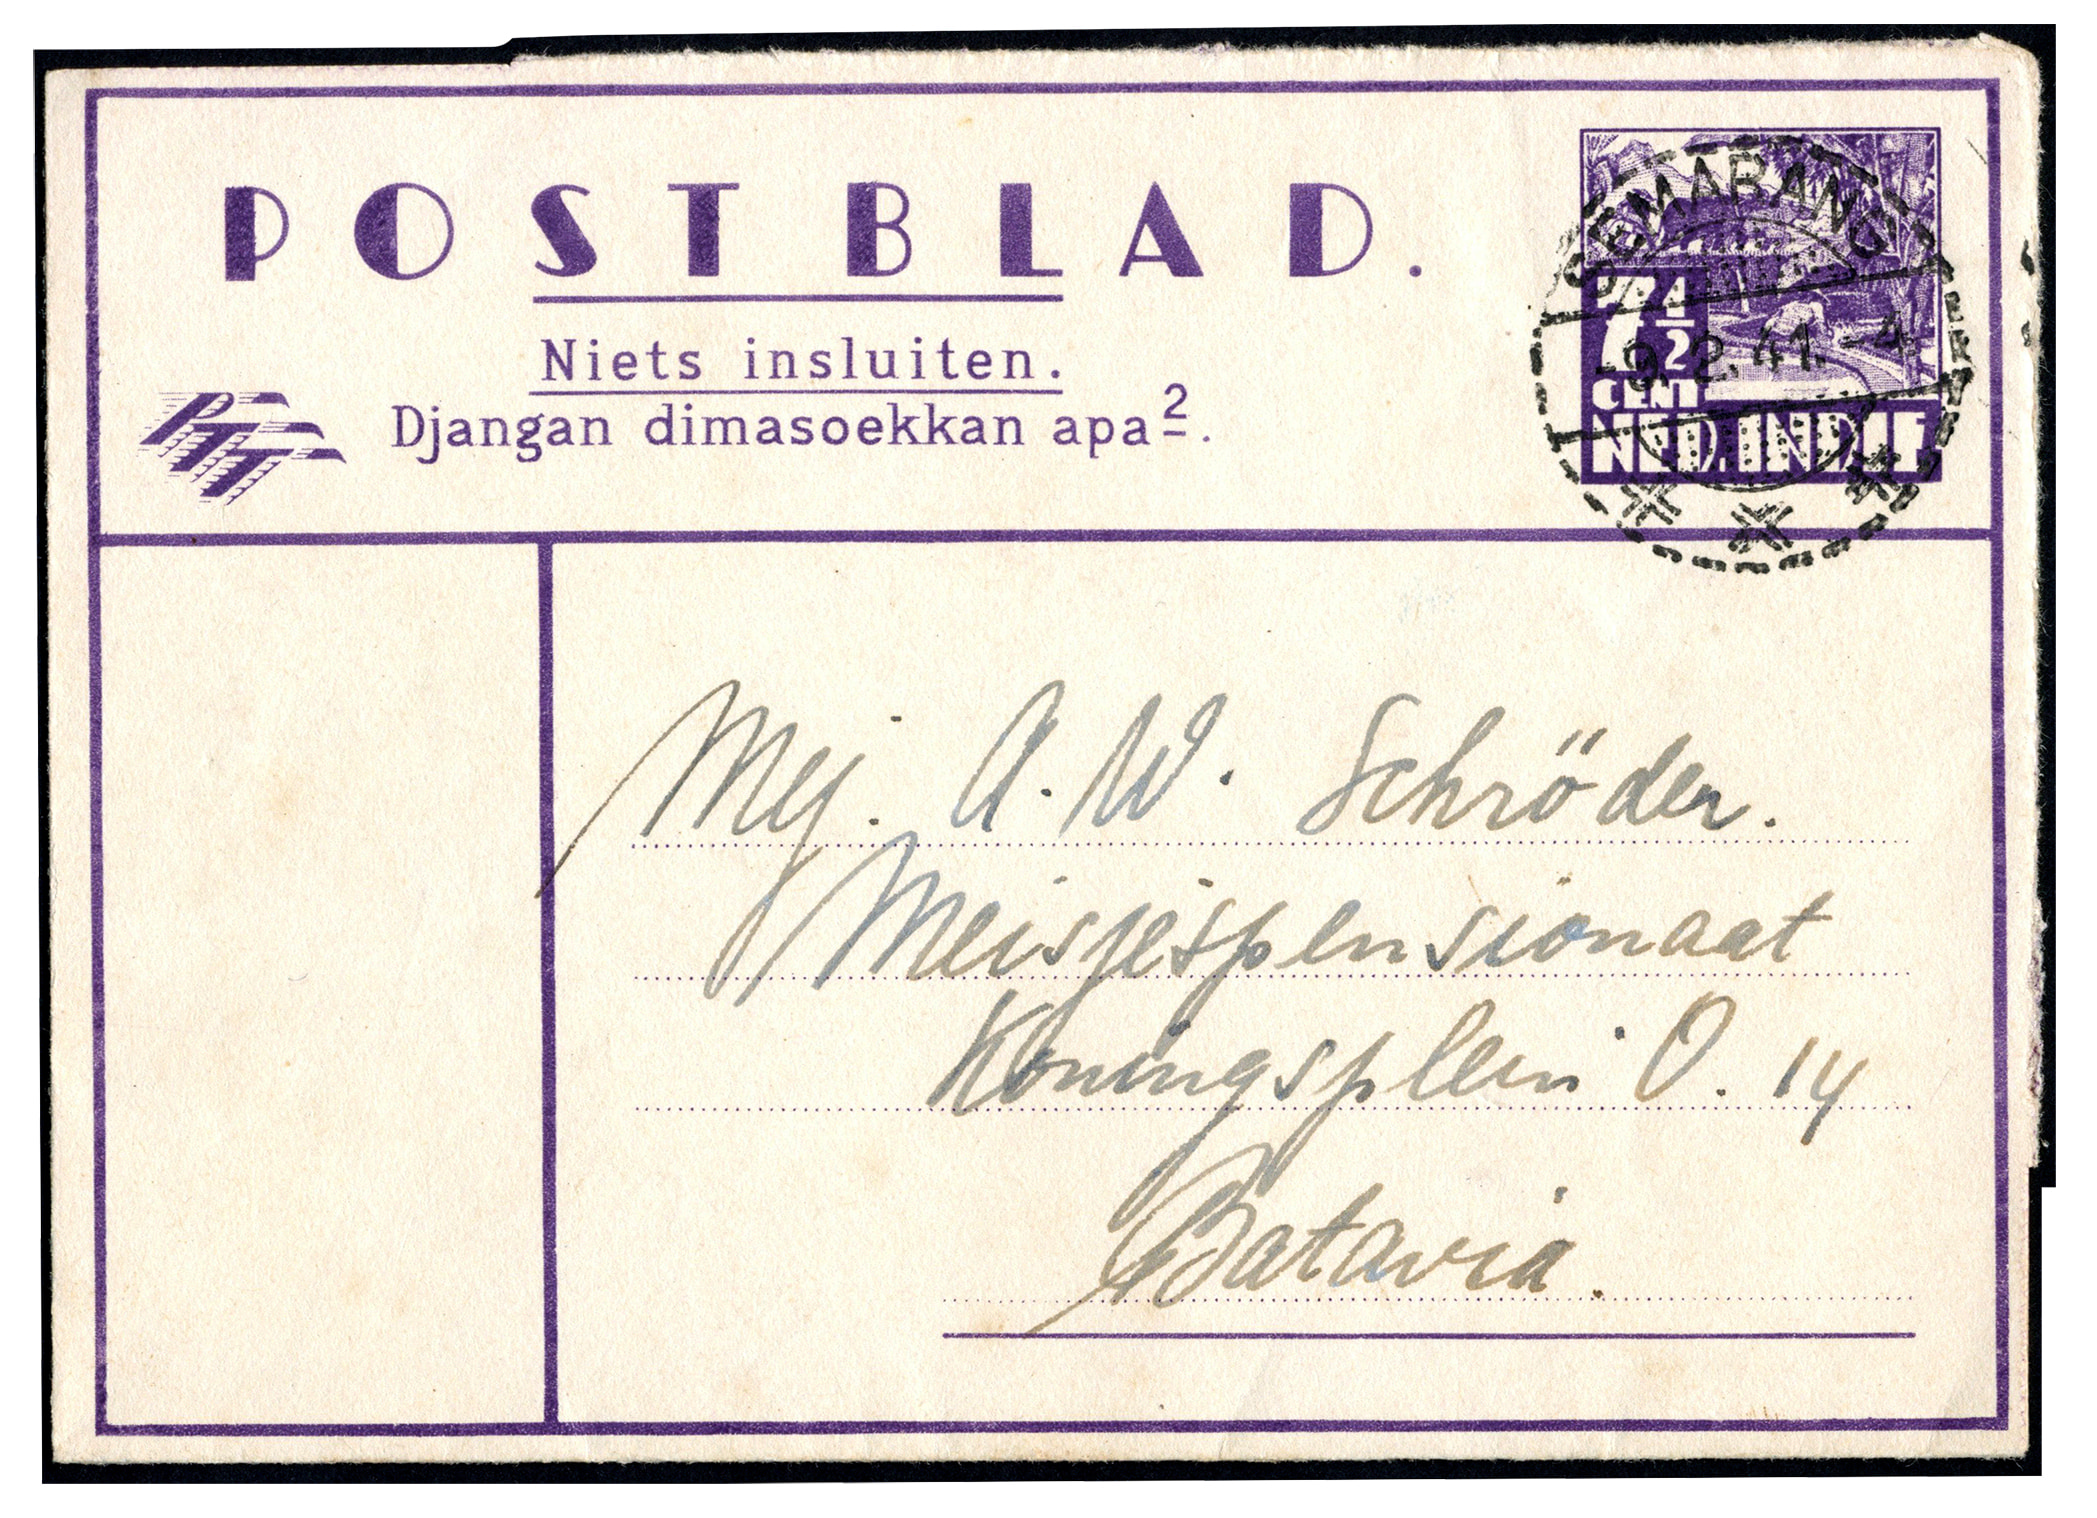 POSTBLAD.
Niets insluiten.
Djangan dimasoekkan apa².
PTT
SEMARANG
-9.2.41.-4
7½
CENT
NED.INDIE
Mej. A.W. Schröder.
Meisjespensionaat
Koningsplein O. 14
Batavia.